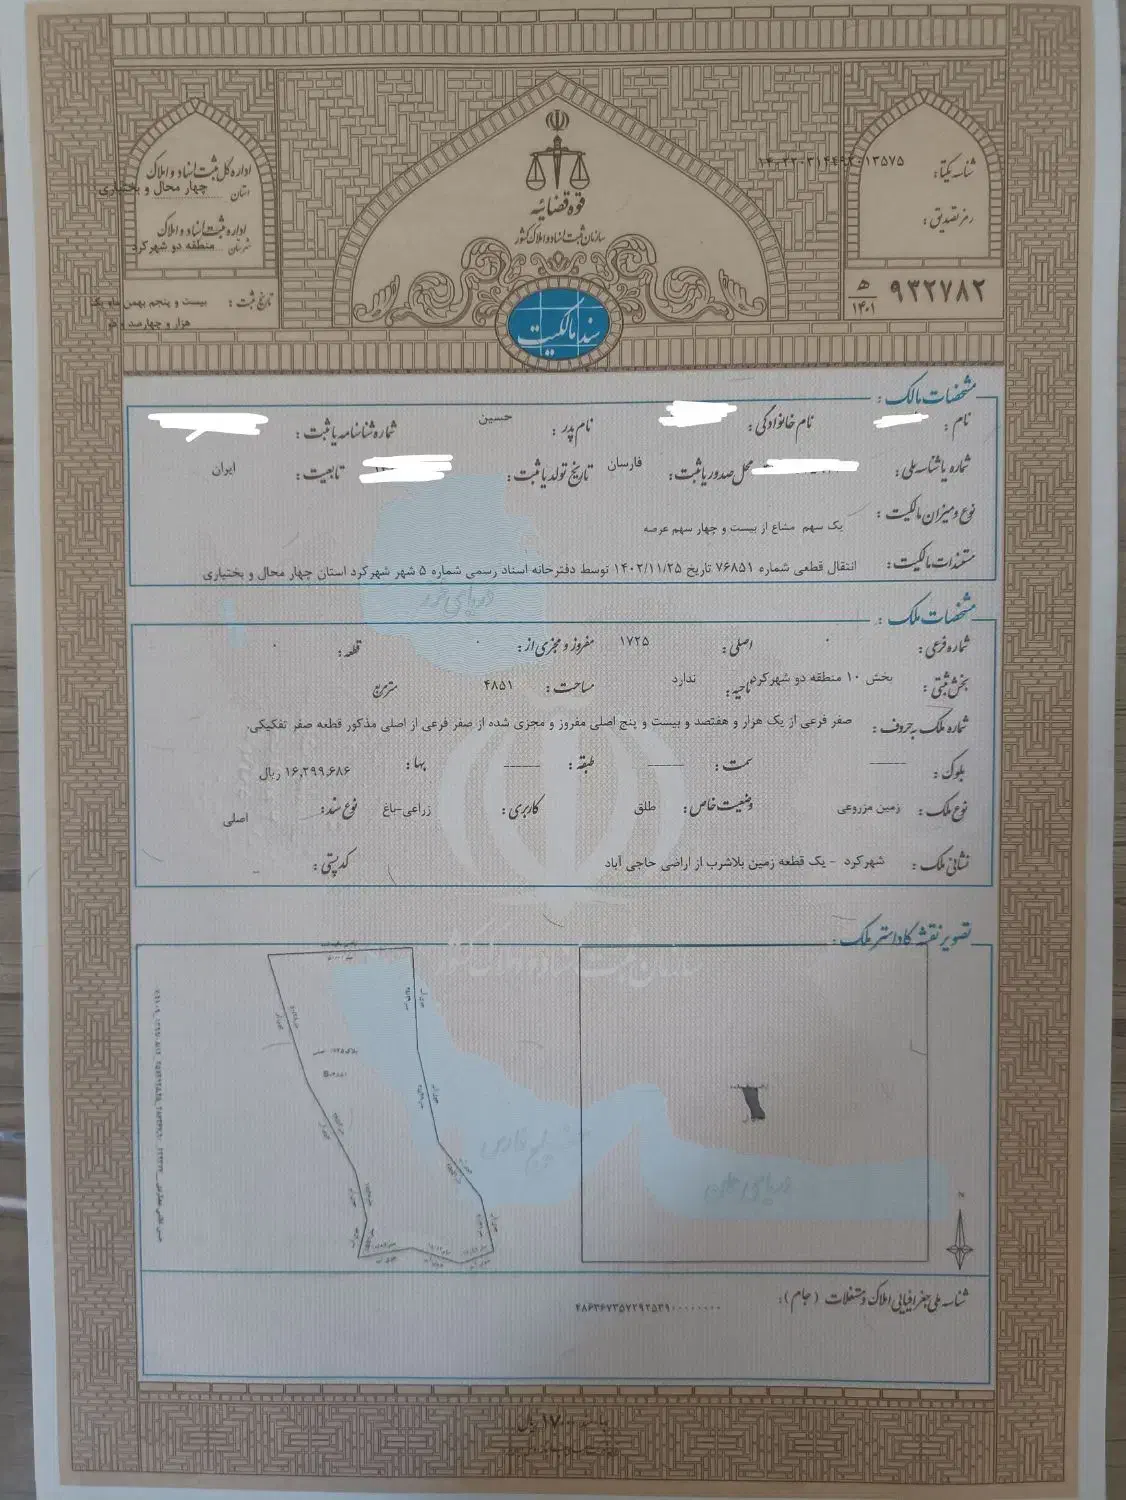 قوه قضائیه
سازمان ثبت اسناد و املاک کشور
سند مالکیت
شناسه یکتا:
رمز تصدیق:
۹۳۲۷۸۲ ه‍ ۱۴۰۱
اداره کل ثبت اسناد و املاک
استان چهار محال و بختیاری
اداره ثبت اسناد و املاک
شهرستان منطقه دو شهرکرد
تاریخ ثبت: بیست و پنجم بهمن ماه یک
هزار و چهارصد و دو
مشخصات مالک:
نام: نام خانوادگی: نام پدر: حسین شماره شناسنامه یا ثبت:
شماره یا شناسه ملی: محل صدور یا ثبت: فارسان تاریخ تولد یا ثبت: تابعیت: ایران
نوع و میزان مالکیت: یک سهم مشاع از بیست و چهار سهم عرصه
مستندات مالکیت: انتقال قطعی شماره ۷۶۸۵۱ تاریخ ۱۴۰۲/۱۱/۲۵ توسط دفترخانه اسناد رسمی شماره ۵ شهر شهرکرد استان چهار محال و بختیاری
دریای خزر
مشخصات ملک:
شماره فرعی: ۰ اصلی: ۱۷۲۵ مفروز و مجزی از: ۰ قطعه: ۰
بخش ثبتی: بخش ۱۰ منطقه دو شهرکرد ناحیه: ندارد مساحت: ۴۸۵۱ مترمربع
شماره ملک به حروف: صفر فرعی از یک هزار و هفتصد و بیست و پنج اصلی مفروز و مجزی شده از صفر فرعی از اصلی مذکور قطعه صفر تفکیکی.
بلوک: ــــــ سمت: ــــــ طبقه: ــــــ بها: ۱۶,۲۹۹,۶۸۶ ریال
نوع ملک: زمین مزروعی وضعیت خاص: طلق کاربری: زراعی-باغ نوع سند: اصلی
نشانی ملک: شهرکرد - یک قطعه زمین بلاشرب از اراضی حاجی آباد کدپستی: -
تصویر نقشه کاداستر ملک:
سازمان ثبت اسناد و املاک کشور
خلیج فارس
دریای عمان
شناسه ملی جغرافیایی املاک و مستغلات (جام):